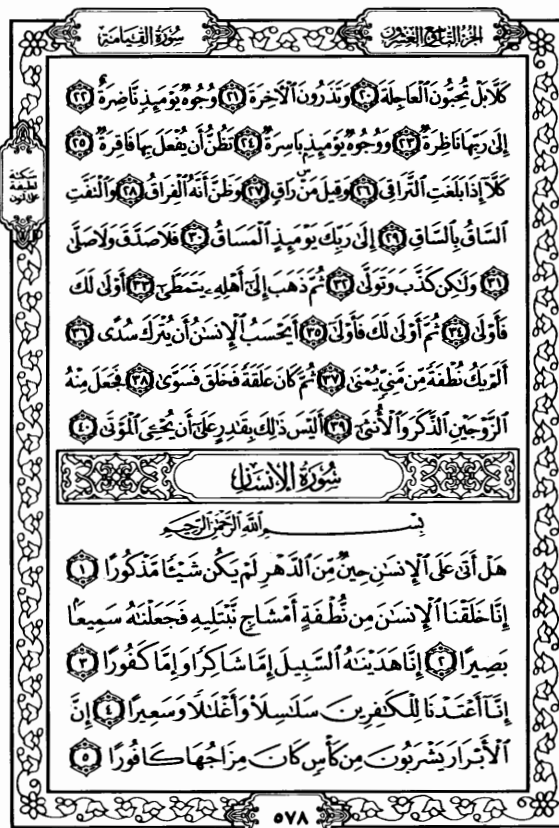 الجزء التاسع والعشرون
سورة القيامة
كَلَّا بَلْ تُحِبُّونَ ٱلْعَاجِلَةَ ٢٠ وَتَذَرُونَ ٱلْآخِرَةَ ٢١ وُجُوهٌ يَوْمَئِذٍ نَّاضِرَةٌ ٢٢
إِلَىٰ رَبِّهَا نَاظِرَةٌ ٢٣ وَوُجُوهٌ يَوْمَئِذٍۭ بَاسِرَةٌ ٢٤ تَظُنُّ أَن يُفْعَلَ بِهَا فَاقِرَةٌ ٢٥
كَلَّآ إِذَا بَلَغَتِ ٱلتَّرَاقِىَ ٢٦ وَقِيلَ مَنْۜ رَاقٍ ٢٧ وَظَنَّ أَنَّهُ ٱلْفِرَاقُ ٢٨ وَٱلْتَفَّتِ
سكتة لطيفة على النون
ٱلسَّاقُ بِٱلسَّاقِ ٢٩ إِلَىٰ رَبِّكَ يَوْمَئِذٍ ٱلْمَسَاقُ ٣٠ فَلَا صَدَّقَ وَلَا صَلَّىٰ
٣١ وَلَٰكِن كَذَّبَ وَتَوَلَّىٰ ٣٢ ثُمَّ ذَهَبَ إِلَىٰٓ أَهْلِهِۦ يَتَمَطَّىٰٓ ٣٣ أَوْلَىٰ لَكَ
فَأَوْلَىٰ ٣٤ ثُمَّ أَوْلَىٰ لَكَ فَأَوْلَىٰٓ ٣٥ أَيَحْسَبُ ٱلْإِنسَٰنُ أَن يُتْرَكَ سُدًى ٣٦
أَلَمْ يَكُ نُطْفَةً مِّن مَّنِىٍّ يُمْنَىٰ ٣٧ ثُمَّ كَانَ عَلَقَةً فَخَلَقَ فَسَوَّىٰ ٣٨ فَجَعَلَ مِنْهُ
ٱلزَّوْجَيْنِ ٱلذَّكَرَ وَٱلْأُنثَىٰٓ ٣٩ أَلَيْسَ ذَٰلِكَ بِقَٰدِرٍ عَلَىٰٓ أَن يُحْۦِىَ ٱلْمَوْتَىٰ ٤٠
سورة الإنسان
بِسْمِ ٱللَّهِ ٱلرَّحْمَٰنِ ٱلرَّحِيمِ
هَلْ أَتَىٰ عَلَى ٱلْإِنسَٰنِ حِينٌ مِّنَ ٱلدَّهْرِ لَمْ يَكُن شَيْـًٔا مَّذْكُورًا ١
إِنَّا خَلَقْنَا ٱلْإِنسَٰنَ مِن نُّطْفَةٍ أَمْشَاجٍ نَّبْتَلِيهِ فَجَعَلْنَٰهُ سَمِيعًۢا
بَصِيرًا ٢ إِنَّا هَدَيْنَٰهُ ٱلسَّبِيلَ إِمَّا شَاكِرًا وَإِمَّا كَفُورًا ٣
إِنَّآ أَعْتَدْنَا لِلْكَٰفِرِينَ سَلَٰسِلَا۟ وَأَغْلَٰلًا وَسَعِيرًا ٤ إِنَّ
ٱلْأَبْرَارَ يَشْرَبُونَ مِن كَأْسٍ كَانَ مِزَاجُهَا كَافُورًا ٥
٥٧٨